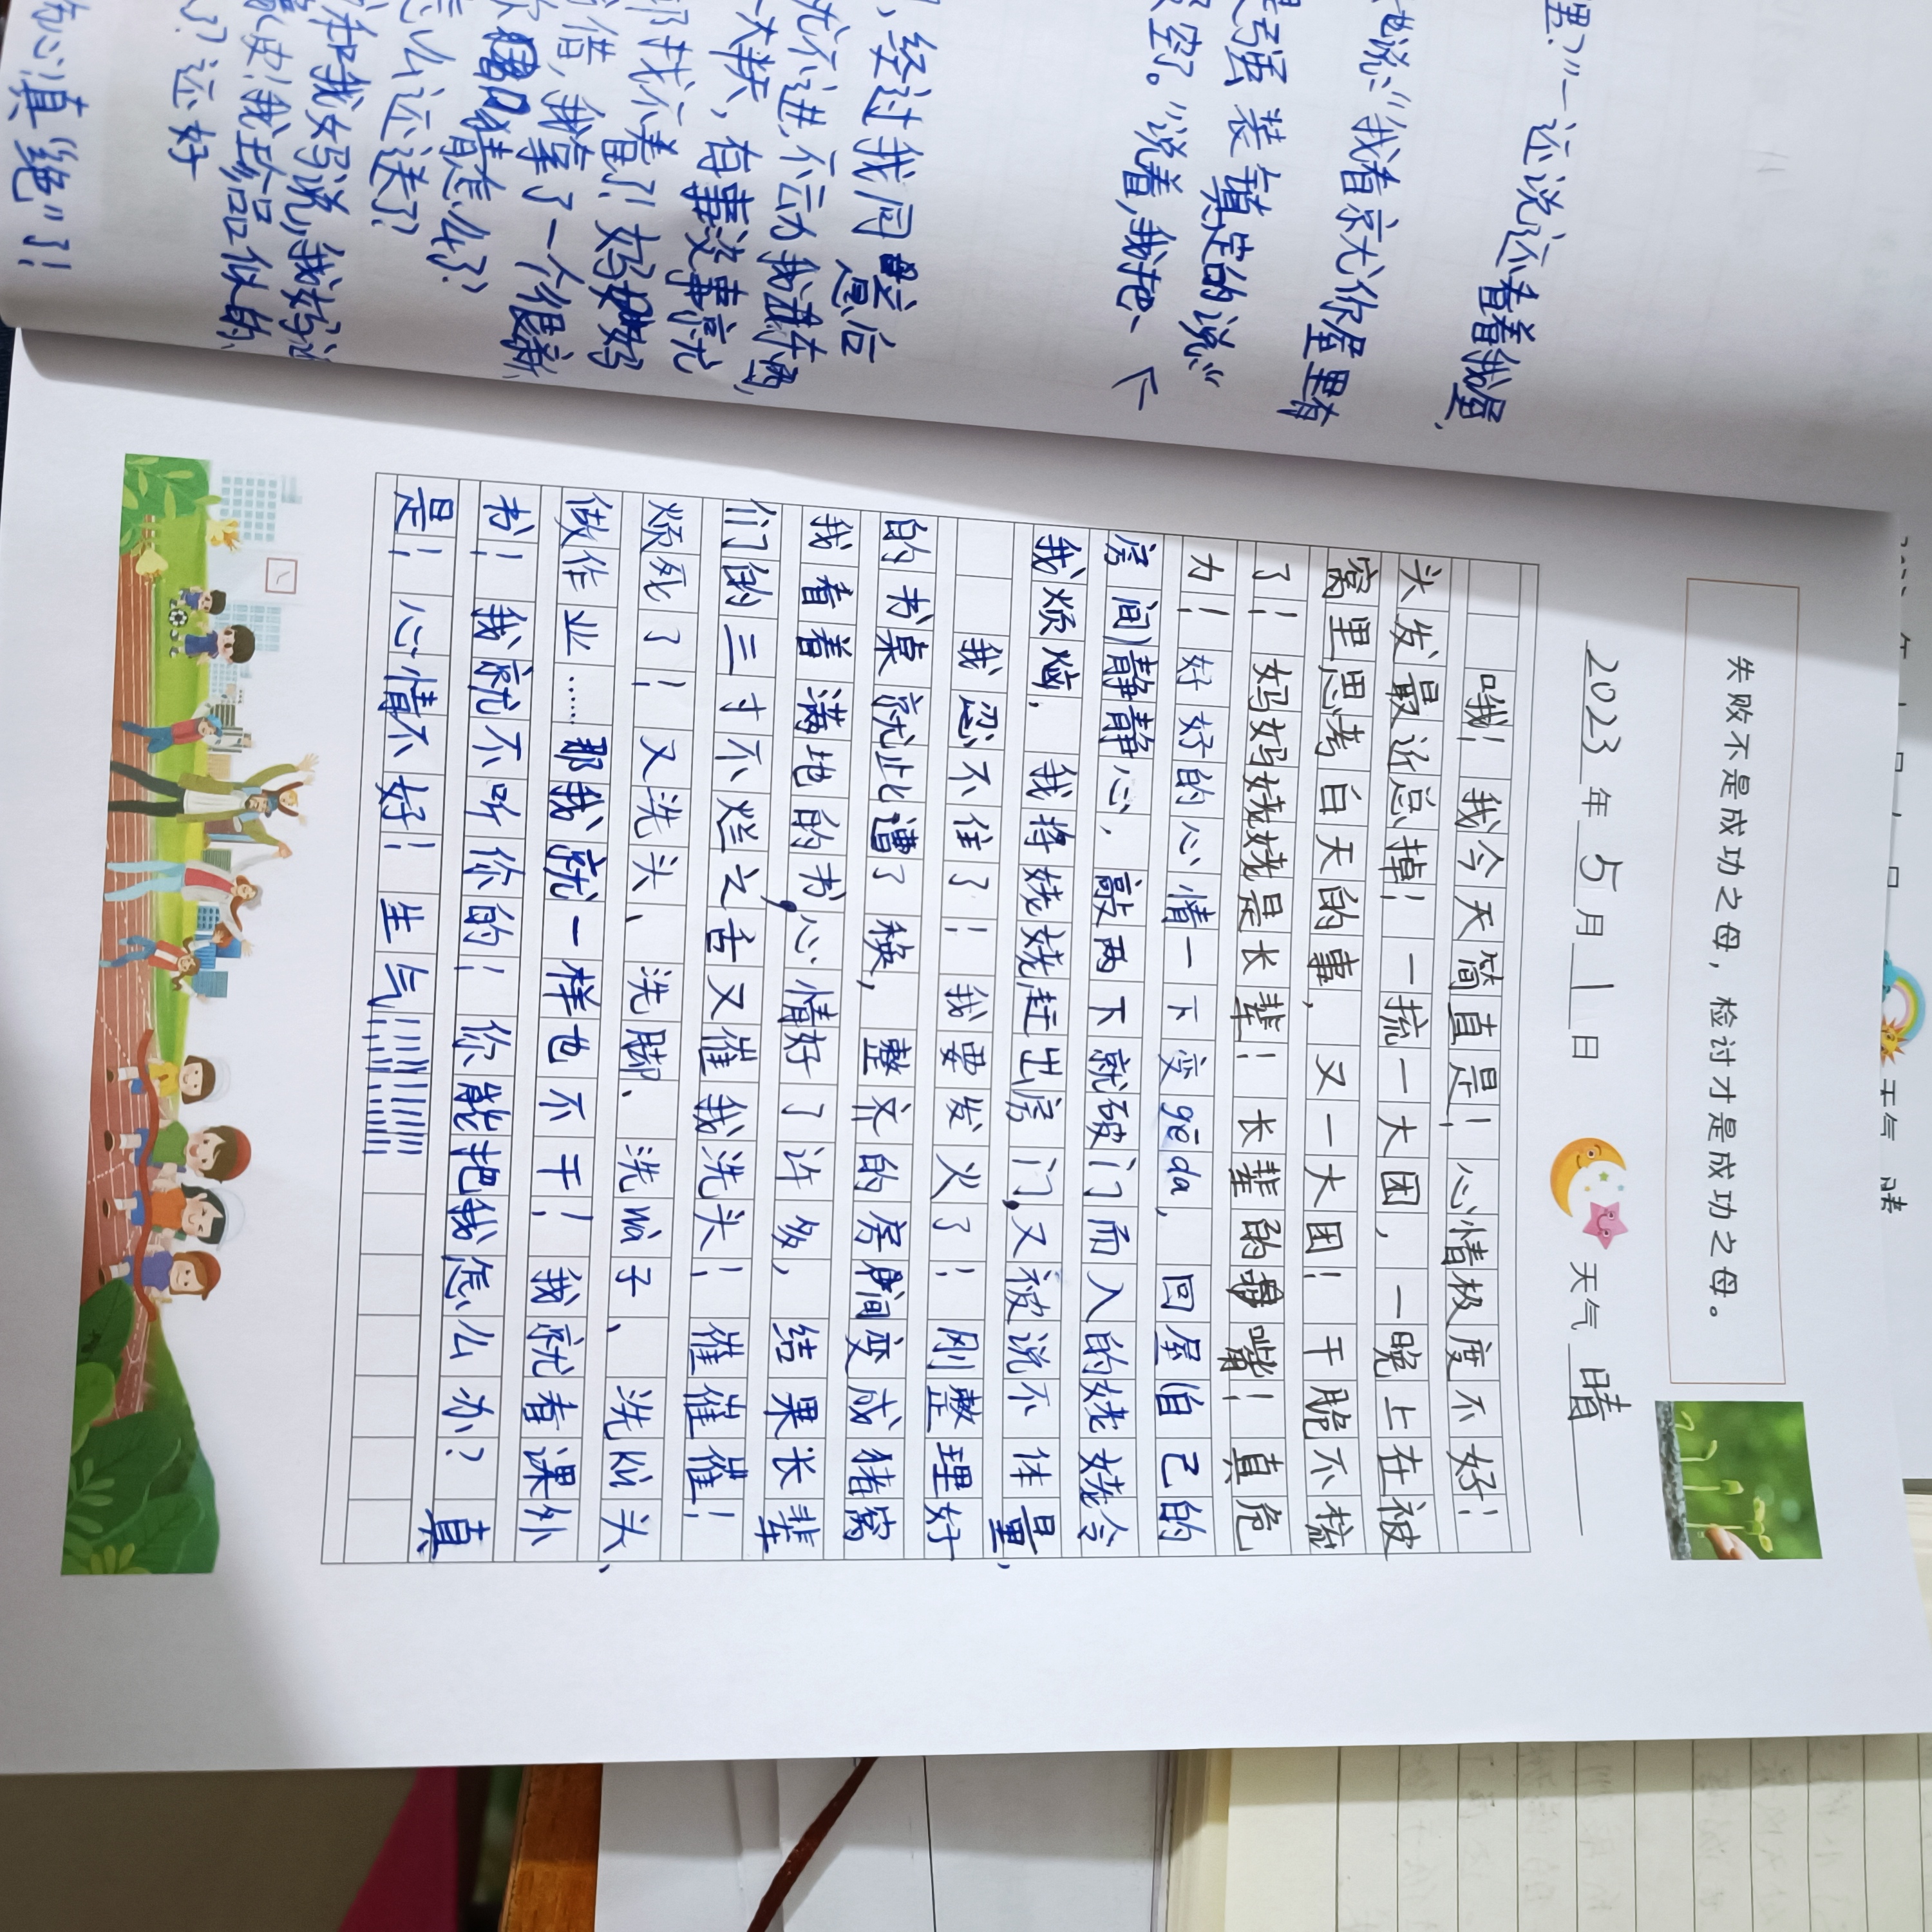 失败不是成功之母，检讨才是成功之母。
2023年5月1日 天气 晴
哦！我今天简直是！心情极度不好！
头发最近总掉！一梳一大团，一晚上在被
窝里思考白天的事，又一大团！干脆不梳
了！妈妈姥姥是长辈！长辈的嘴！真危
力！好好的心情一下变gēda，回屋自己的
房间静静心，敲两下就破门而入的姥姥令
我烦恼．我将姥姥赶出房门，又被说不体量，
我忍不住了！我要发火了！刚整理好
的书桌就此遭了秧，整齐的房间变成猪窝
我看着满地的书，心情好了许多，结果长辈
们的三寸不烂之舌又催我洗头！催催催！
烦死了！又洗头、洗脚、洗   子、洗   头、
做作业……那我就一样也不干！我就看课外
书！我就不听你的！你能把我怎么办？真
是！心情不好！生气！！！！！！！！！！！！
里？”一还说还看着我屋.
地说：“我看京尤你屋里有
强装镇定的说：“
空了。”说着，我把
，经过我同意后
不进，
大类，有事没事就
找不着了！妈妈
借，我拿了一个很新
猜怎么了？
怎么还送了？
和我妈说，我妈
皮！我珍品似的，
了？还好
真“绝”了！
天气 晴